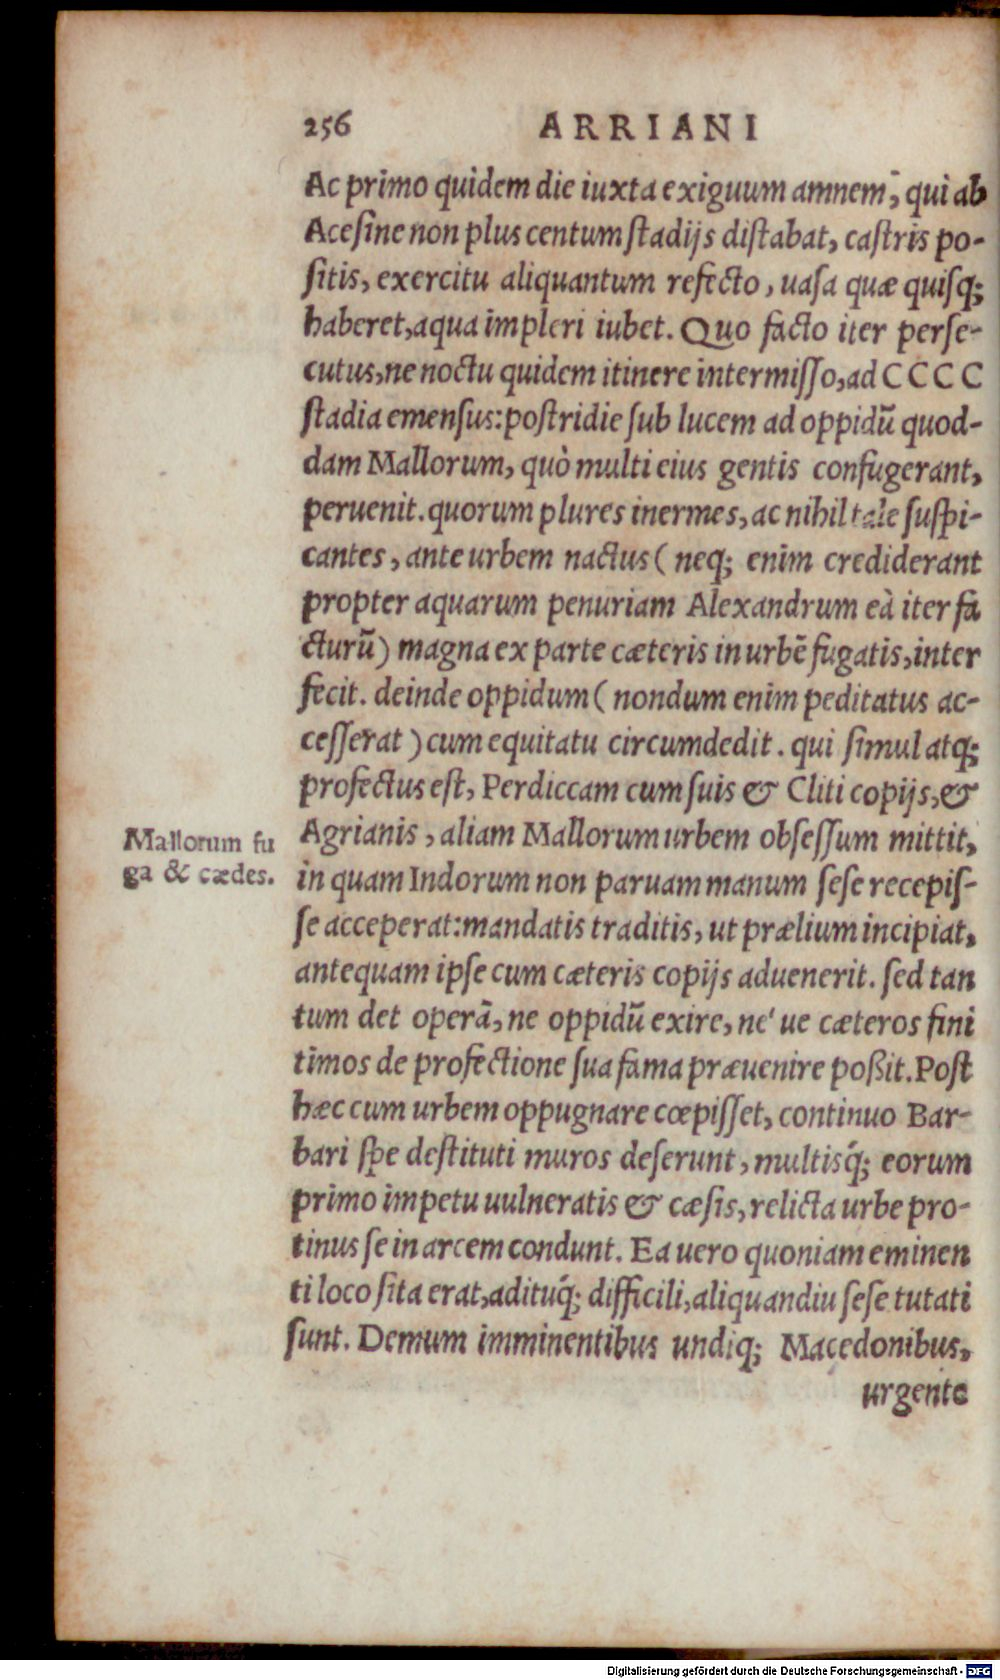 256 ARRIANI
Ac primo quidem die iuxta exiguum amnem, qui ab
Acesine non plus centum stadijs distabat, castris po-
sitis, exercitu aliquantum refecto, uasa quæ quisq;
haberet, aqua impleri iubet. Quo facto iter perse-
cutus, ne noctu quidem itinere intermisso, ad CCCC
stadia emensus: postridie sub lucem ad oppidũ quod-
dam Mallorum, quò multi eius gentis confugerant,
peruenit. quorum plures inermes, ac nihil tale suspi-
cantes, ante urbem nactus (neq; enim crediderant
propter aquarum penuriam Alexandrum eà iter fa
cturũ) magna ex parte cæteris in urbẽ fugatis, inter
fecit. deinde oppidum (nondum enim peditatus ac-
cesserat) cum equitatu circumdedit. qui simul atq;
profectus est, Perdiccam cum suis & Cliti copijs, &
Agrianis, aliam Mallorum urbem obsessum mittit,
in quam Indorum non paruam manum sese recepis-
se acceperat: mandatis traditis, ut prælium incipiat,
antequam ipse cum cæteris copijs aduenerit. sed tan
tum det operã, ne oppidũ exire, ne' ue cæteros fini
timos de profectione sua fama præuenire poßit. Post
hæc cum urbem oppugnare cœpisset, continuo Bar-
bari spe destituti muros deserunt, multisq́; eorum
primo impetu uulneratis & cæsis, relicta urbe pro-
tinus se in arcem condunt. Ea uero quoniam eminen
ti loco sita erat, adituq́; difficili, aliquandiu sese tutati
sunt. Demum imminentibus undiq; Macedonibus,
urgente
Mallorum fu
ga & cædes.
Digitalisierung gefördert durch die Deutsche Forschungsgemeinschaft - DFG